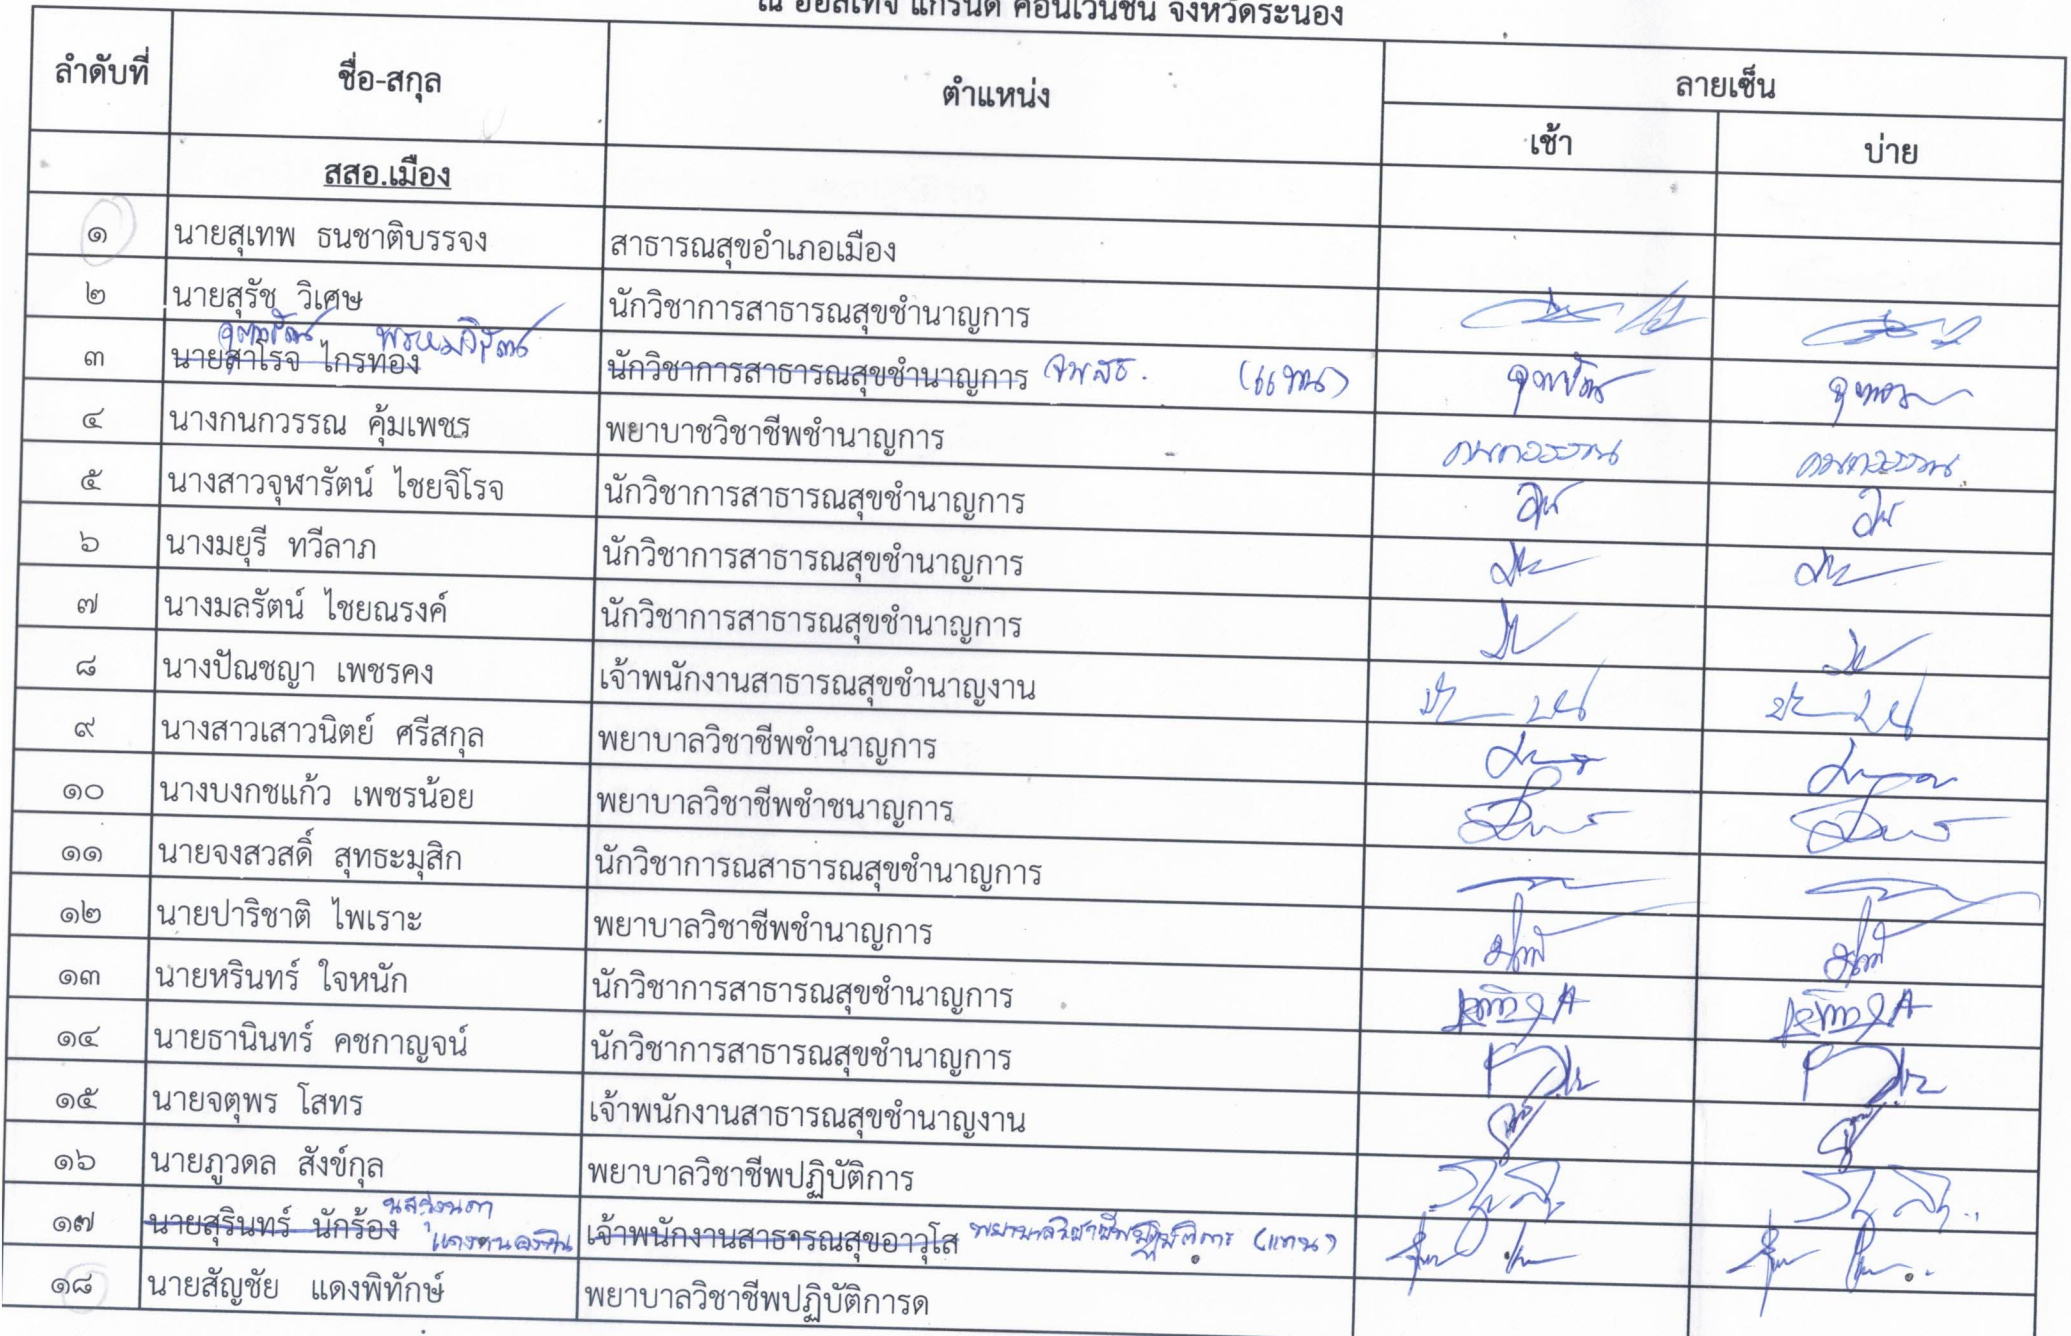 ณ ฮอลิเทจ แกรนด์ คอนเวนชั่น จังหวัดระนอง
ลำดับที่ ชื่อ-สกุล ตำแหน่ง ลายเซ็น
เช้า บ่าย
สสอ.เมือง
๑ นายสุเทพ ธนชาติบรรจง สาธารณสุขอำเภอเมือง
๒ นายสุรัช วิเศษ นักวิชาการสาธารณสุขชำนาญการ
๓ นายสำโรจ ไกรทอง นักวิชาการสาธารณสุขชำนาญการ จพสธ. (แทน)
๔ นางกนกวรรณ คุ้มเพชร พยาบาชวิชาชีพชำนาญการ กนกวรรณ กนกวรรณ
๕ นางสาวจุฬารัตน์ ไชยจิโรจ นักวิชาการสาธารณสุขชำนาญการ
๖ นางมยุรี ทวีลาภ นักวิชาการสาธารณสุขชำนาญการ
๗ นางมลรัตน์ ไชยณรงค์ นักวิชาการสาธารณสุขชำนาญการ
๘ นางปัณชญา เพชรคง เจ้าพนักงานสาธารณสุขชำนาญงาน
๙ นางสาวเสาวนิตย์ ศรีสกุล พยาบาลวิชาชีพชำนาญการ
๑๐ นางบงกชแก้ว เพชรน้อย พยาบาลวิชาชีพชำชนาญการ
๑๑ นายจงสวสดิ์ สุทธะมุสิก นักวิชาการณสาธารณสุขชำนาญการ
๑๒ นายปาริชาติ ไพเราะ พยาบาลวิชาชีพชำนาญการ
๑๓ นายหรินทร์ ใจหนัก นักวิชาการสาธารณสุขชำนาญการ
๑๔ นายธานินทร์ คชกาญจน์ นักวิชาการสาธารณสุขชำนาญการ
๑๕ นายจตุพร โสทร เจ้าพนักงานสาธารณสุขชำนาญงาน
๑๖ นายภูวดล สังข์กุล พยาบาลวิชาชีพปฏิบัติการ
๑๗ นายสุรินทร์ นักร้อง เจ้าพนักงานสาธารณสุขอาวุโส พยาบาลวิชาชีพปฏิบัติการ (แทน)
๑๘ นายสัญชัย แดงพิทักษ์ พยาบาลวิชาชีพปฏิบัติการด